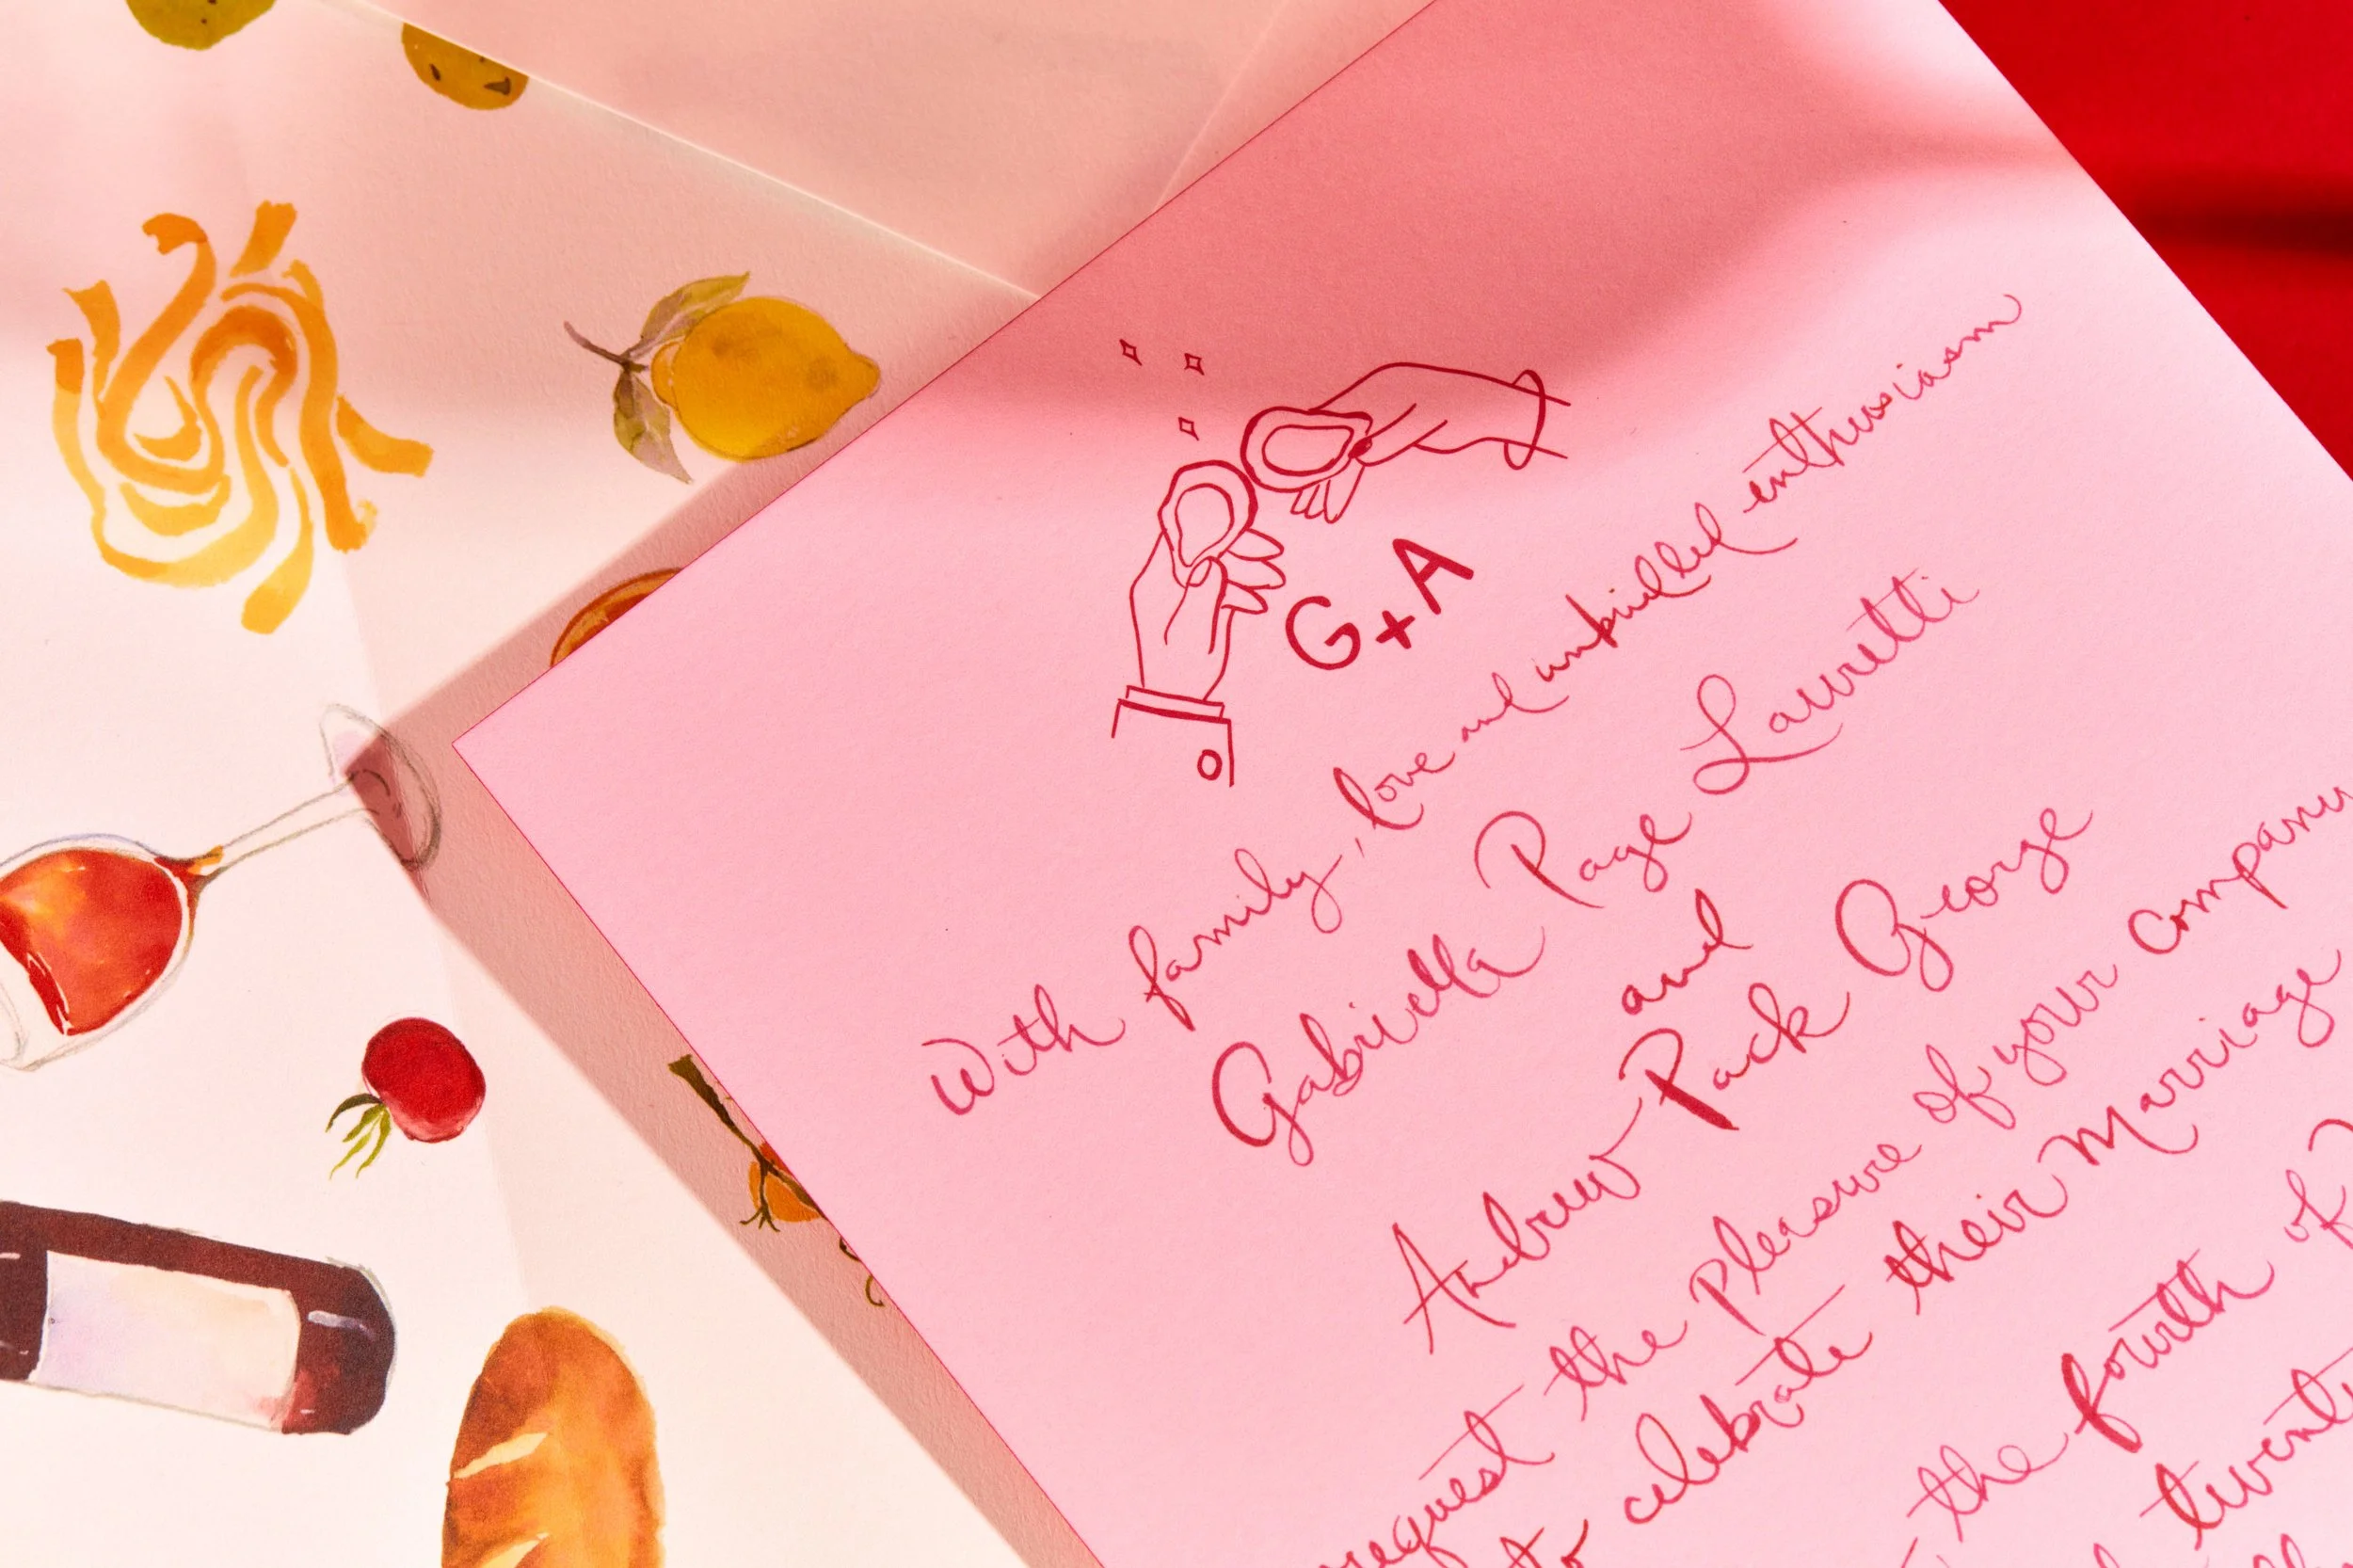 G+A
With family, love and unbridled enthusiasm
Gabriella Page Lauretti
and
Andrew Pack George
request the pleasure of your company
to celebrate their Marriage
the fourth of
twenty